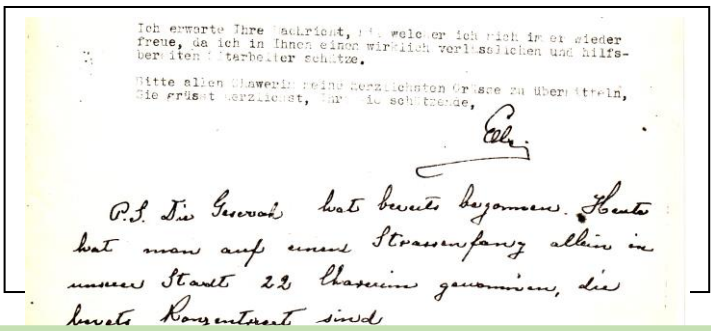 Ich erwarte Ihre Nachricht, mit welcher ich mich immer wieder
freue, da ich in Ihnen einen wirklich verlässlichen und hilfs-
bereiten Mitarbeiter schätze.
Bitte allen Chawerim meine herzlichsten Grüsse zu übermitteln,
Sie grüsst herzlichst, Ihre Sie schätzende,
P.S. Die Geserah hat bereits begonnen. Heute
hat man auf einem Strassenfang allein in
unserer Stadt 22 Chaverim genommen, die
bereits Konzentriert sind